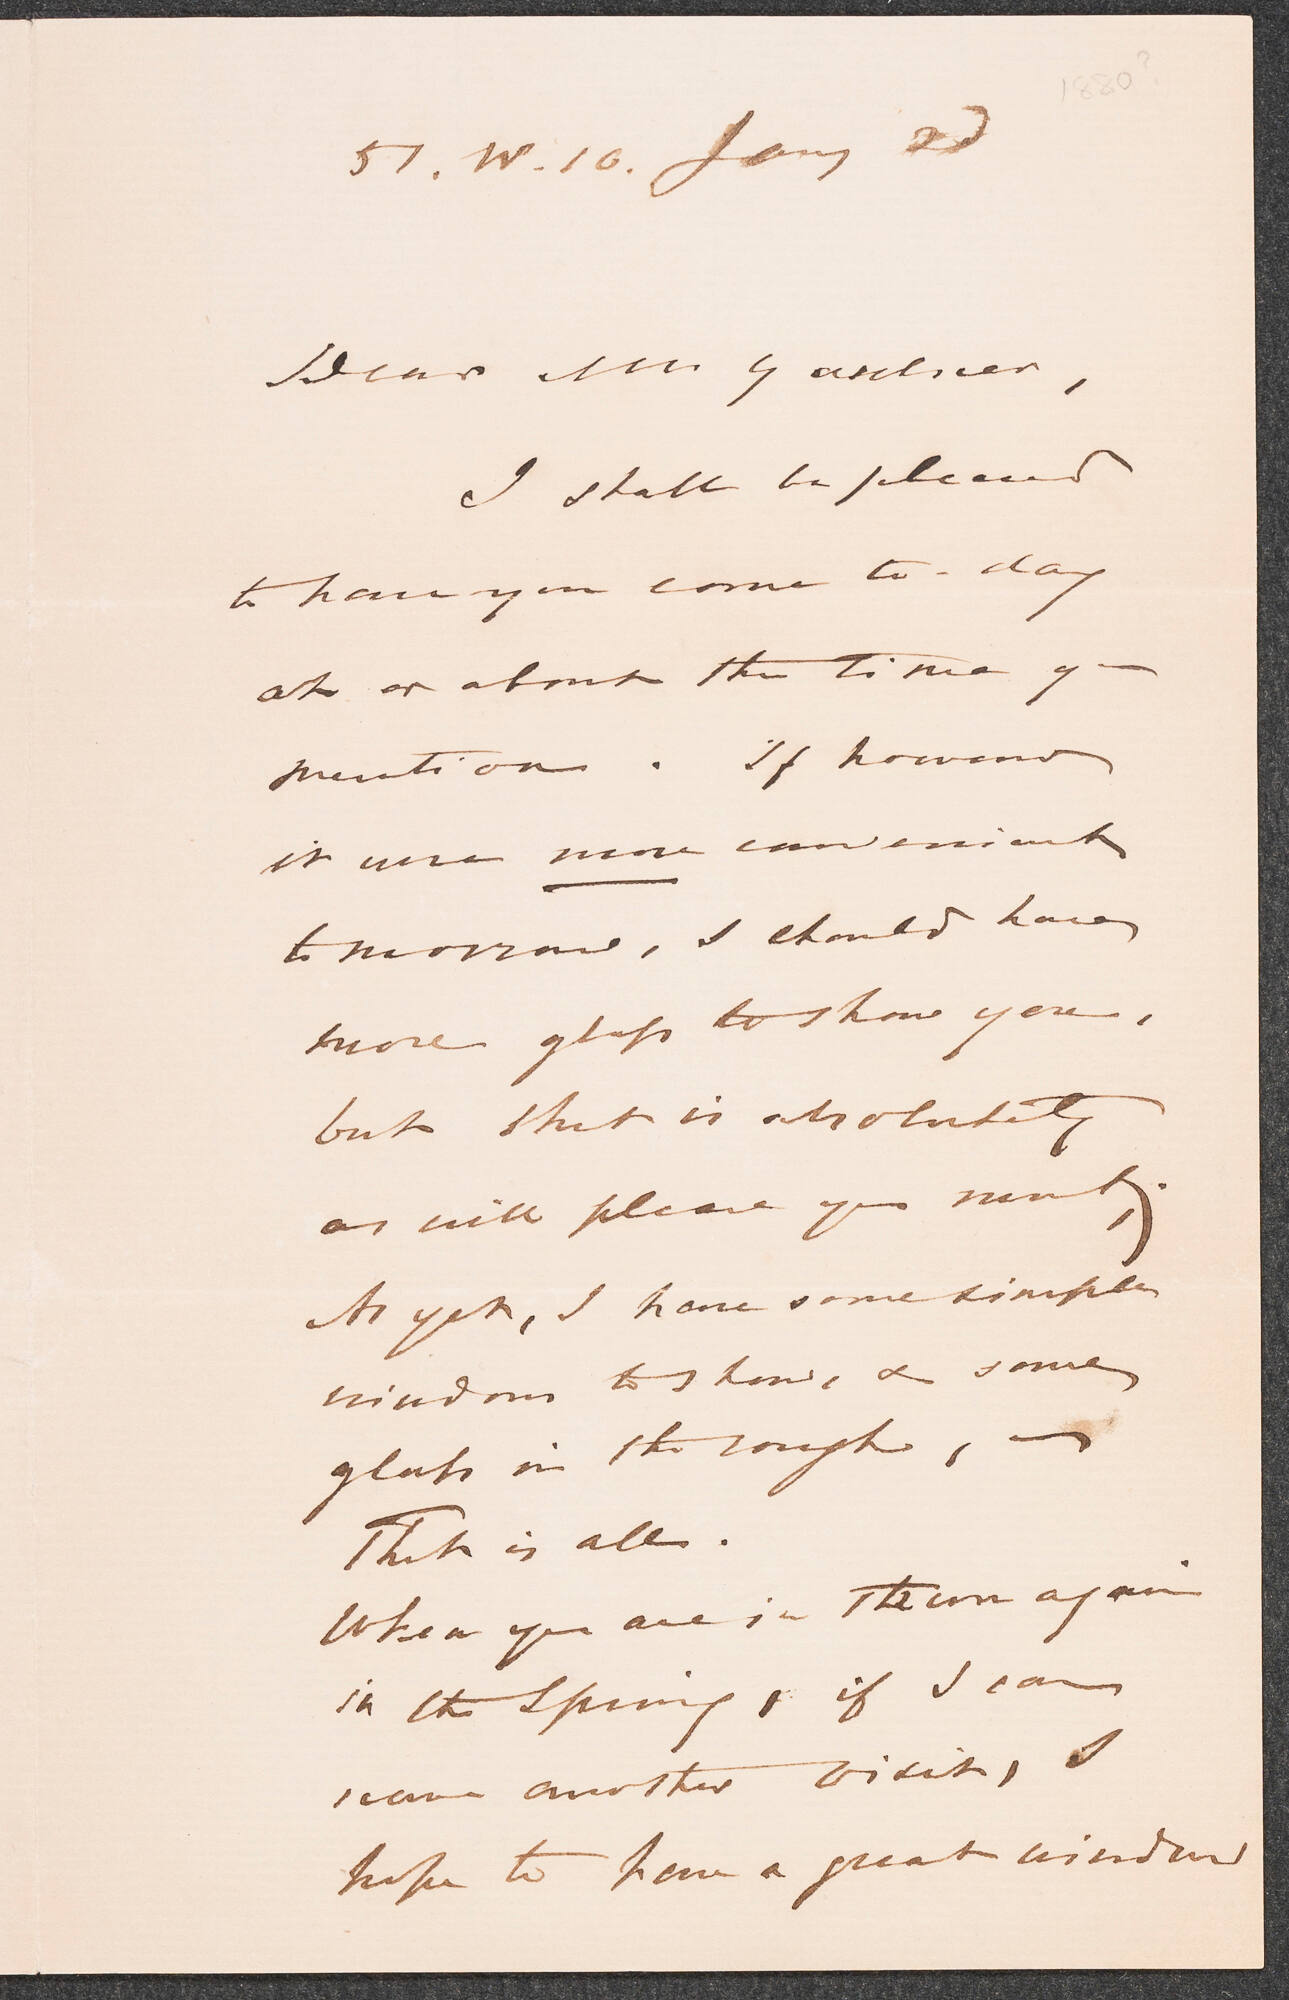 1880?
51. W. 10. Jany 2d
Dear Mrs Gardner,
I shall be pleased
to have you come to-day
at or about the time you
mention. If however
it were more convenient
tomorrow, I should have
more glass to show you,
but that is absolutely
as will please you most.
As yet, I have some simple
windows to show, & some
glass in the rough,
That is all.
When you are in town again
in the Spring, if I can
have another visit, I
hope to have a great window